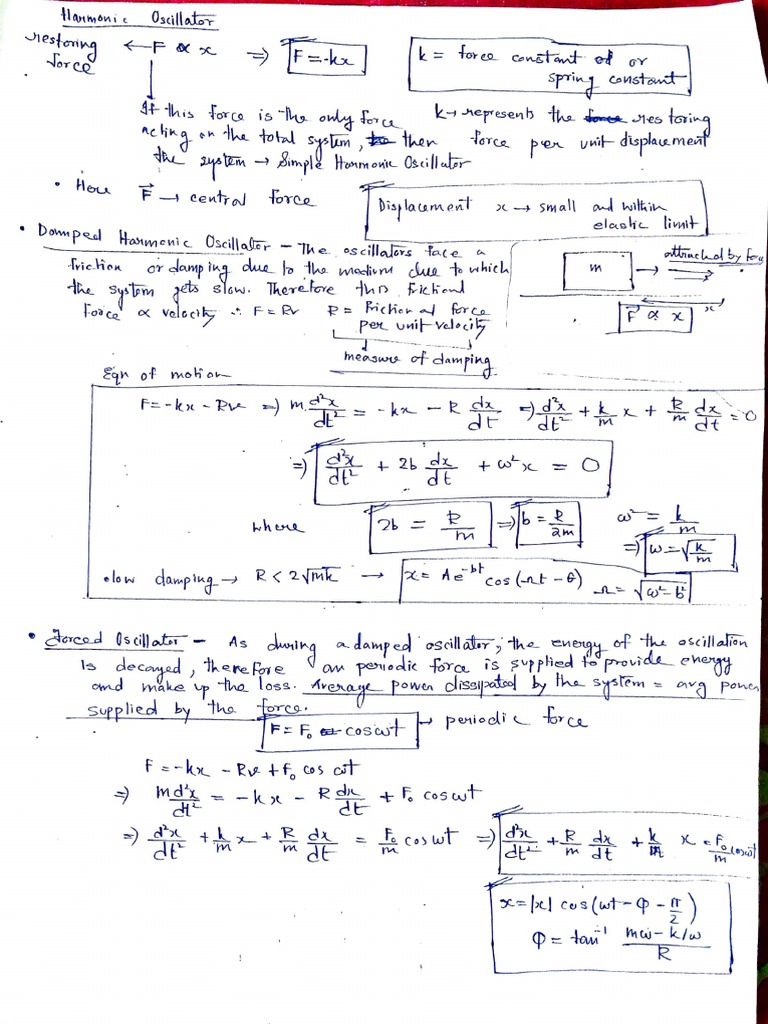 Harmonic Oscillator
restoring force ← F ∝ x ⇒ F = -kx
k = force constant or spring constant
If this force is the only force acting on the total system, then the system → Simple Harmonic Oscillator
k → represents the restoring force per unit displacement
• Here F⃗ → central force
Displacement x → small and within elastic limit
• Damped Harmonic Oscillator - The oscillators face a
friction or damping due to the medium due to which
the system gets slow. Therefore this frictional
Force ∝ velocity ∴ F = Rv R = Frictional force
per unit velocity
measure of damping
m → attracted by
x
F⃗ ∝ x
Eqn of motion
F = -kx - Rv ⇒ m d²x/dt² = -kx - R dx/dt ⇒ d²x/dt² + k/m x + R/m dx/dt = 0
⇒ d²x/dt² + 2b dx/dt + ω²x = 0
where 2b = R/m ⇒ b = R/2m ω² = k/m
⇒ ω = √(k/m)
• low damping → R < 2√mk → x = Ae^-bt cos(Ωt - θ) Ω = √(ω² - b²)
• Forced Oscillator - As during a damped oscillator, the energy of the oscillation
is decayed, therefore an periodic force is supplied to provide energy
and make up the loss. Average power dissipated by the system = avg power
supplied by the force.
F = F₀ cos ωt → periodic force
F = -kx - Rv + F₀ cos ωt
⇒ m d²x/dt² = -kx - R dx/dt + F₀ cos ωt
⇒ d²x/dt² + k/m x + R/m dx/dt = F₀/m cos ωt ⇒ d²x/dt² + R/m dx/dt + k/m x = F₀/m cos ωt
x = |x| cos(ωt - φ - π/2)
φ = tan⁻¹ (mω - k/ω)/R